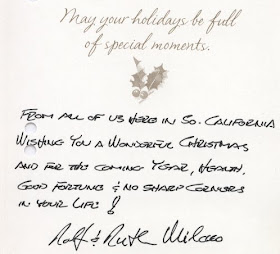 May your holidays be full
of special moments.
FROM ALL OF US HERE IN SO. CALIFORNIA
WISHING YOU A WONDERFUL CHRISTMAS
AND FOR THE COMING YEAR, HEALTH,
GOOD FORTUNE & NO SHARP CORNERS
IN YOUR LIFE!
& Ruth